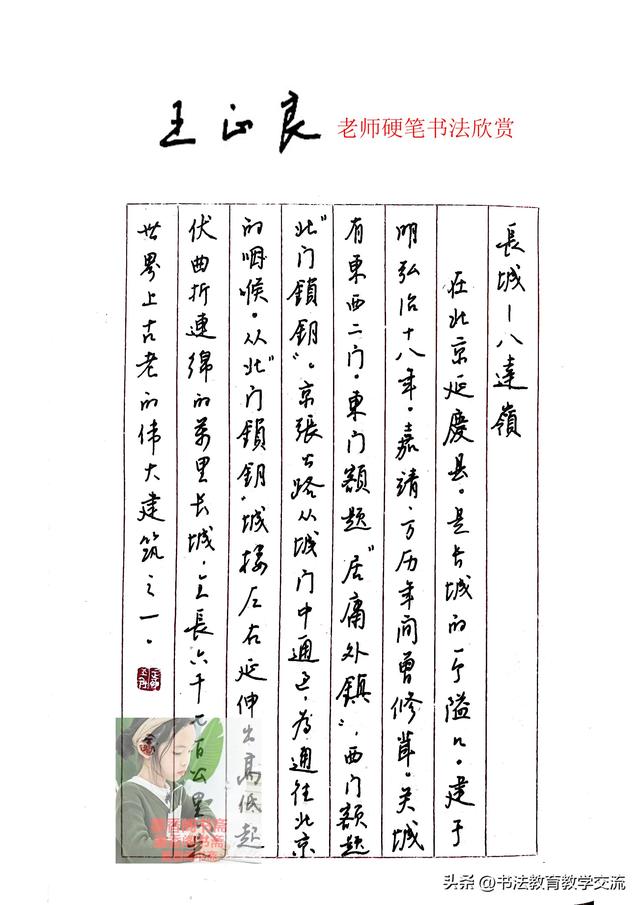 王正良 老师硬笔书法欣赏
長城—八達嶺
在北京延慶县。是长城的一个隘口。建于
明弘治十八年。嘉靖、万历年间曾修葺。关城
有東西二门。東门額题“居庸外鎮”，西门額题
“北门鎖钥”。京張公路从城门中通过，为通往北京
的咽喉。从“北门鎖钥”城楼左右延伸出高低起
伏曲折連绵的萬里长城，全長六千七百公里，是
世界上古老的伟大建筑之一。
头条 @书法教育教学交流